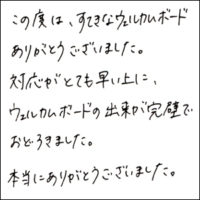 この度は、すてきなウェルカムボード
ありがとうございました。
対応がとても早い上に、
ウェルカムボードの出来が完璧で
おどろきました。
本当にありがとうございました。